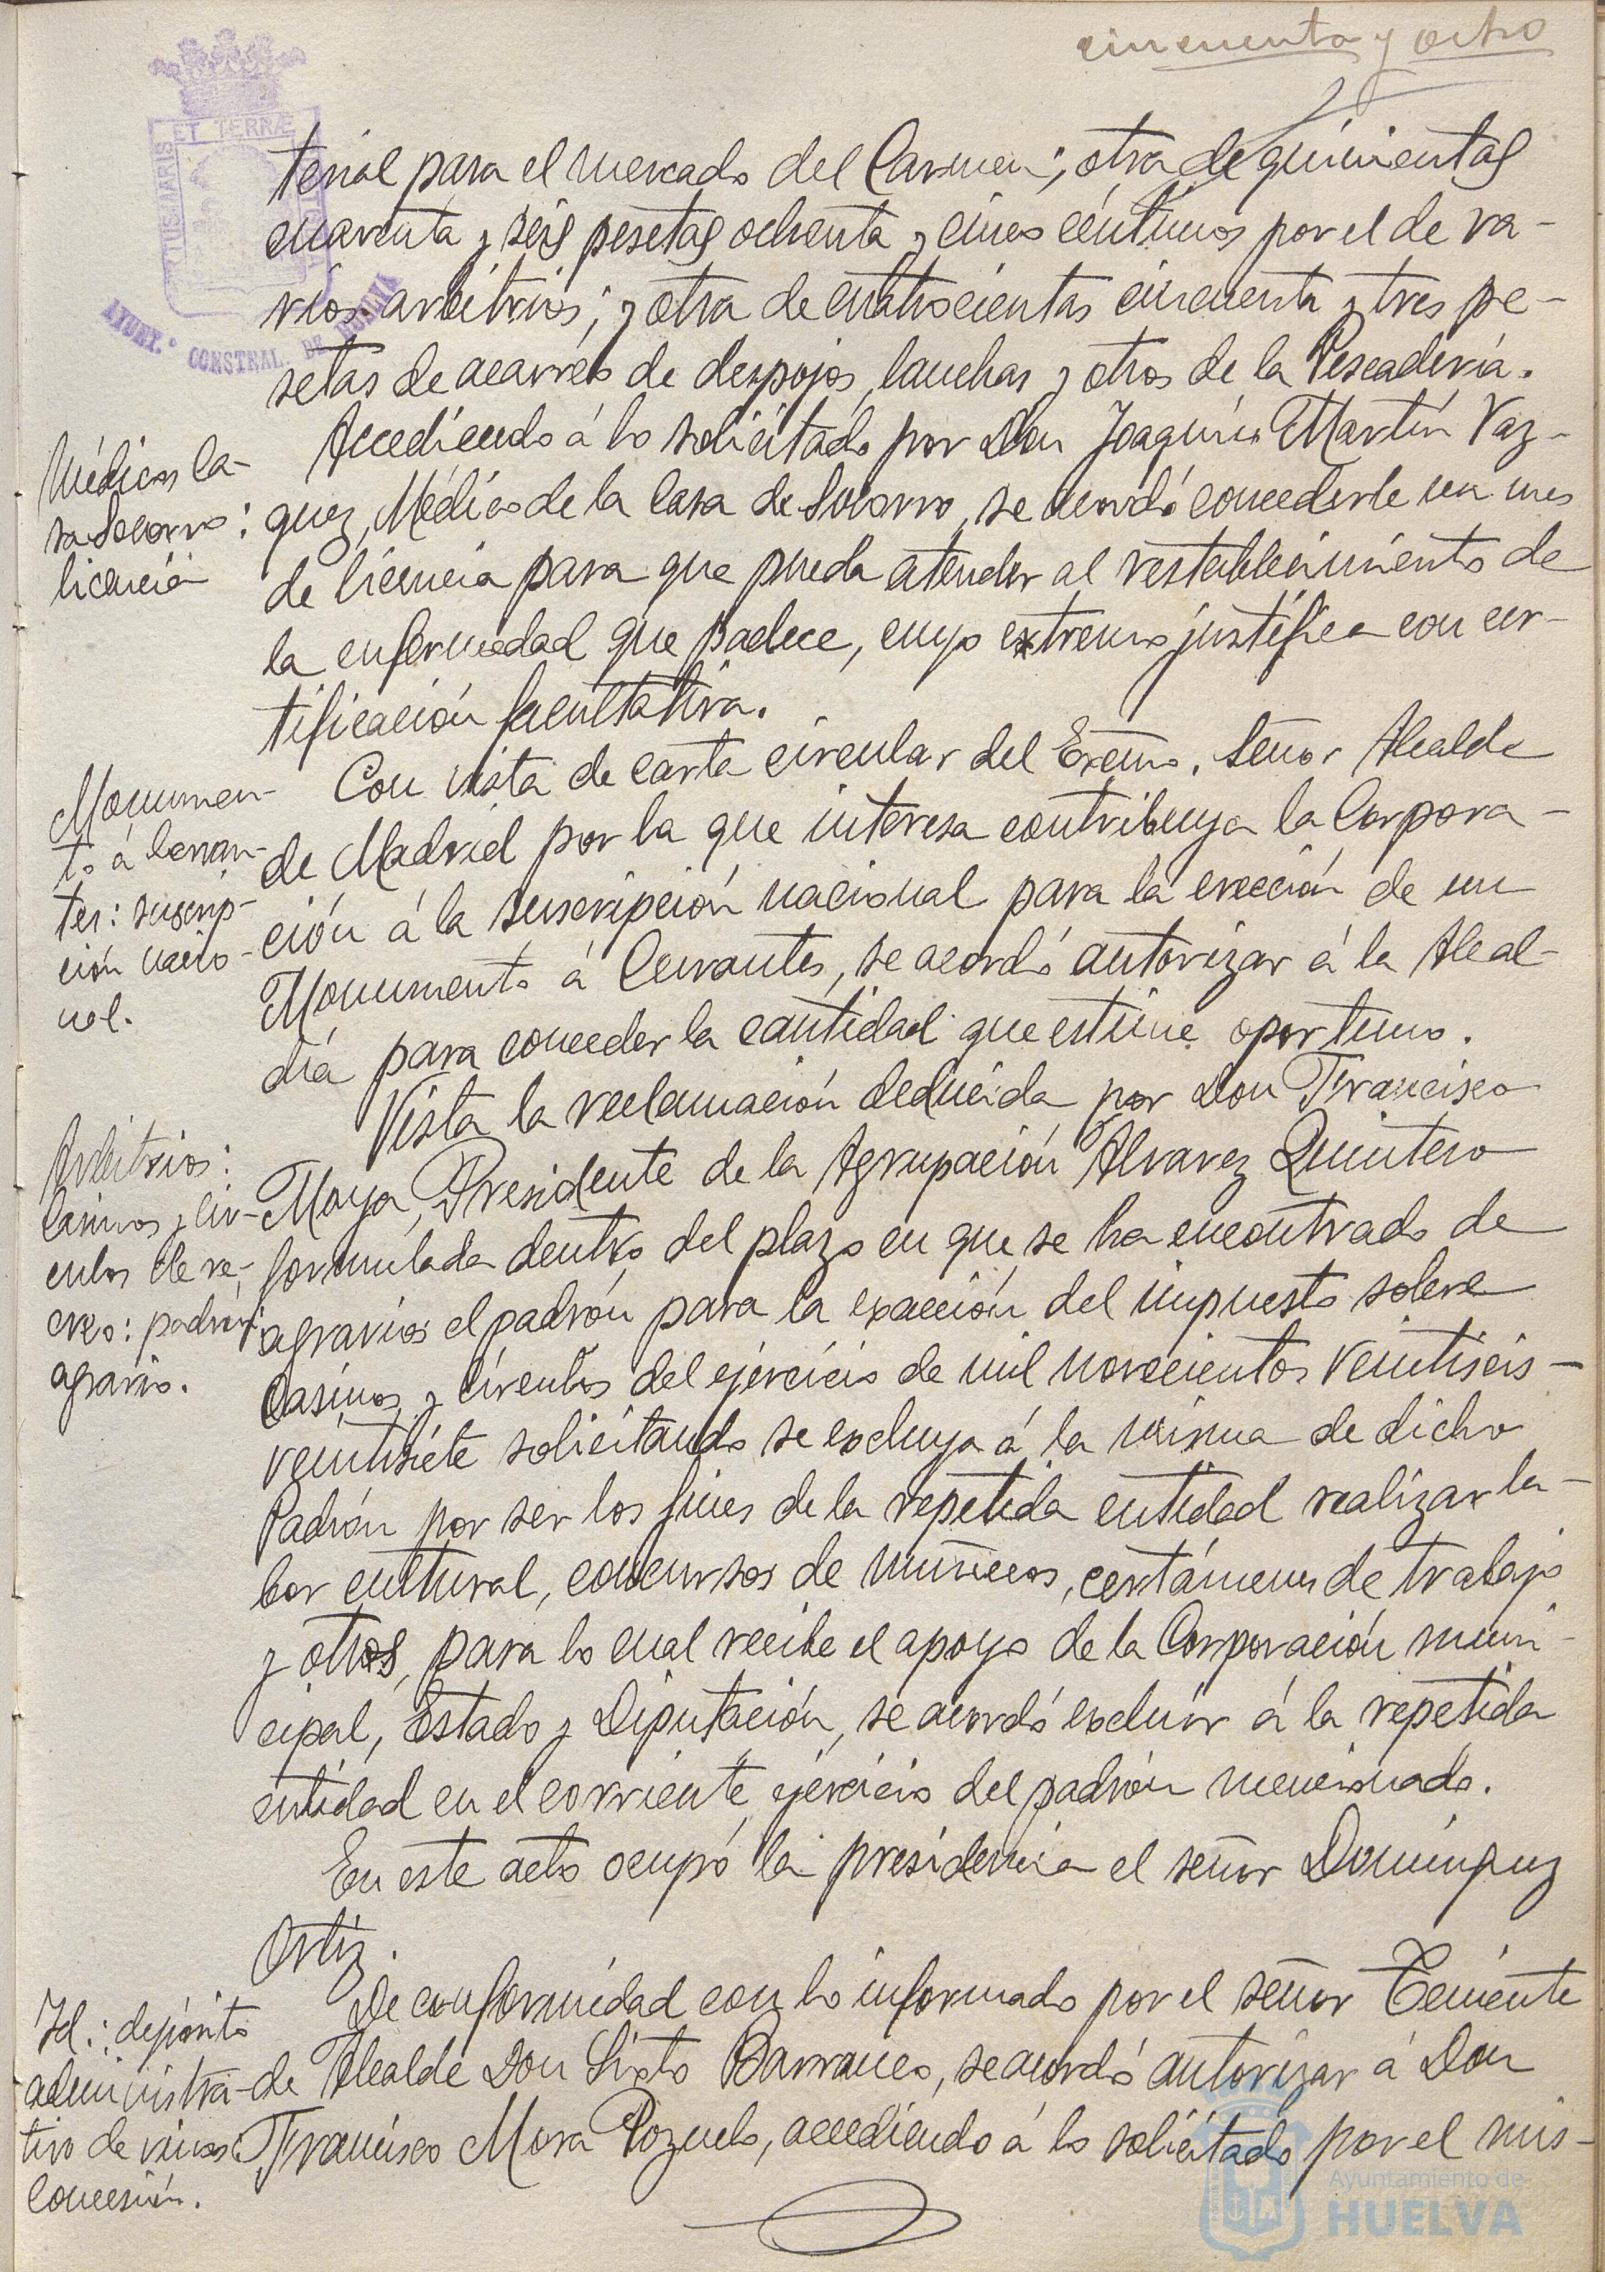 cincuenta y ocho
ET TERRÆ
AYUNT.º CONSTNAL. DE HUELVA
terial para el mercado del Carmen; otra de quinientas
cuarenta y seis pesetas ochenta y cinco céntimos por el de va-
rios arbitrios; y otra de cuatrocientas cincuenta y tres pe-
setas de acarréo de despojos, lanchas y otros de la Pescadería.
Médicos Ca-
sa Socorro:
licencia
Accediendo á lo solicitado por Don Joaquín Martín Vaz-
quez, Médico de la Casa de Socorro, se acordó concederle un mes
de licencia para que pueda atender al restablecimiento de
la enfermedad que padece, cuyo extremo justifica con cer-
tificación facultativa.
Monumen-
to á Cervan-
tes: suscrip-
ción nacio-
nal.
Con vista de carta circular del Excmo. Señor Alcalde
de Madrid por la que interesa contribuya la Corpora-
ción á la suscripción nacional para la erección de un
Monumento á Cervantes, se acordó autorizar á la Alcal-
día para conceder la cantidad que estime oportuno.
Arbitrios:
Casinos y Cir-
culos de re-
creo: padrón:
agravio.
Vista la reclamación deducida por Don Francisco
Moya, Presidente de la Agrupación Alvarez Quintero
formulada dentro del plazo en que se ha encontrado de
agravios el padrón para la exacción del impuesto sobre
Casinos y Círculos del ejercicio de mil novecientos veintiseis-
veintisiete solicitando se excluya á la misma de dicho
Padrón por ser los fines de la repetida entidad realizar la-
bor cultural, concursos de muñecos, certámenes de trabajo
y otros, para lo cual recibe el apoyo de la Corporación muni-
cipal, Estado y Diputación, se acordó excluir á la repetida
entidad en el corriente ejercicio del padrón mencionado.
En este acto ocupó la presidencia el señor Domínguez
Ortiz.
Id.: depósito
administra-
tivo de vinos:
Concesión.
De conformidad con lo informado por el señor Teniente
de Alcalde Don Sixto Barranco, se acordó autorizar á Don
Francisco Mora Pozuelo, accediendo á lo solicitado por el mis-
Ayuntamiento de
HUELVA